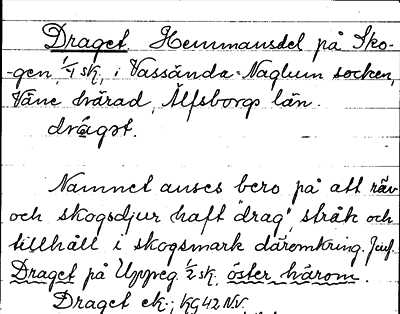 Draget Hemmansdel på Sko-
-gen 1/4 sk, i Vassända-Naglum socken,
Väne härad, Älfsborgs län.
drágət.
Namnet anses bero på att räv
och skogsdjur haft "drag", stråk och
tillhåll i skogsmark däromkring. Jmf.
Draget på Uppreg. 1/2 sk, öster härom.
Draget ek.; KG42NV.